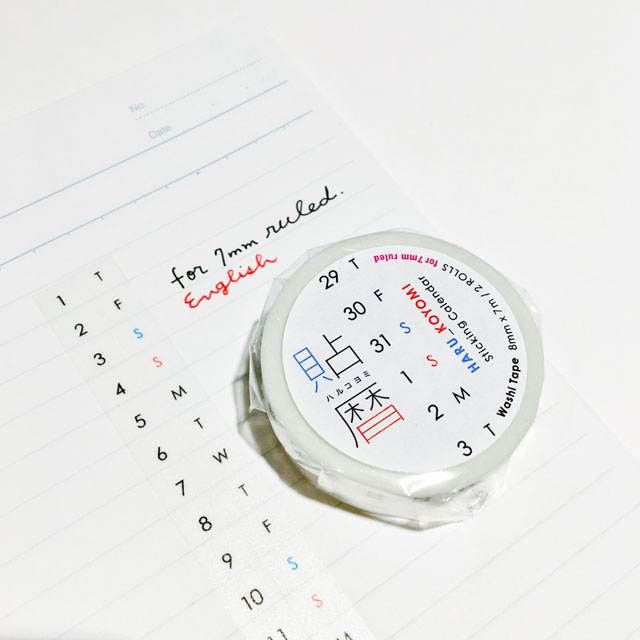 No.
Date
for 7mm ruled.
English
1 T
2 F
3 S
4 S
5 M
6 T
7 W
8 T
9 F
10 S
11 S
29 T
30 F
31 S
1 S
2 M
3 T
貼暦
ハルコヨミ
HARU_KOYOMI
Sticking Calendar
for 7mm ruled
Washi Tape 8mm x 7m / 2 ROLLS